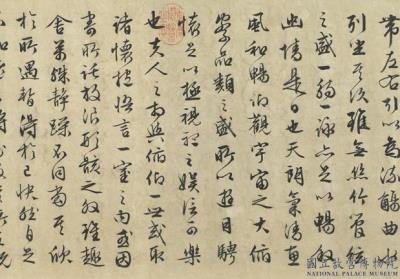 帶左右引以為流觴曲水
列坐其次雖無絲竹管弦
之盛一觴一詠亦足以暢敘
幽情是日也天朗氣清惠
風和暢仰觀宇宙之大俯
察品類之盛所以遊目騁
懷足以極視聽之娛信可樂
也夫人之相與俯仰一世或取
諸懷抱悟言一室之內或因
寄所託放浪形骸之外雖趣
舍萬殊靜躁不同當其欣
於所遇暫得於己快然自足
國立故宮博物院
NATIONAL PALACE MUSEUM